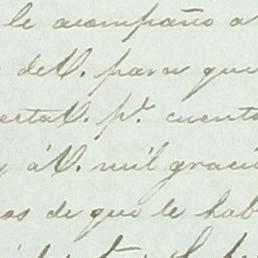 le acompaño a
de V. para que
esta V. pr. cuenta
y á V. mil graci
os de que le hab